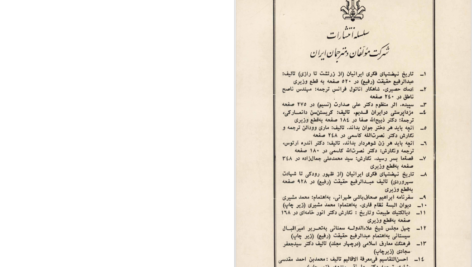 سلسله انتشارات
شرکت مؤلفان و مترجمان ایران
۱ـ تاریخ نهضتهای فکری ایرانیان (از زرتشت تا رازی) تالیف:
عبدالرفیع حقیقت (رفیع) در ۵۲۰ صفحه به قطع وزیری
۲ـ عمدام حصیری، شاهکار آناتول فرانس ترجمه: مهندس ناصح
ناطق در ۲۴۰ صفحه
۳ـ سپیده، اثر منظوم دکتر علی صدارت (نسیم) در ۲۷۵ صفحه
۴ـ مزداپرستی در ایران قدیم، تالیف: کریستن‌سن دانمارکی،
ترجمه: دکتر ذبیح‌الله صفا در ۱۸۴ صفحه به‌قطع وزیری
۵ـ آنچه باید هر دختر جوان بداند، تالیف: ماری وودآلن ترجمه و
نگارش دکتر نصرت‌الله کاسمی در ۲۴۸ صفحه
۶ـ آنچه باید هر زن شوهردار بداند، تالیف: دکتر آندره آرتوس،
ترجمه و نگارش: دکتر نصرت‌الله کاسمی در ۱۸۰ صفحه
۷ـ قصه‌ما بسر رسید، نگارش: سید محمدعلی جمال‌زاده در ۳۴۸
صفحه به‌قطع وزیری
۸ـ تاریخ نهضتهای فکری ایرانیان (از ظهور رودکی تا شهادت
سهروردی) تالیف عبدالرفیع حقیقت (رفیع) در ۹۲۸ صفحه
به‌قطع وزیری
۹ـ سفرنامه ابراهیم صحاف‌باشی طهرانی، به‌اهتمام: محمد مشیری
۱۰ـ دیوان البسهٔ نظام قاری، به‌اهتمام: محمد مشیری (زیر چاپ)
۱۱ـ دیالکتیک طبیعت و تاریخ: نگارش دکتر انور خامه‌ای در ۱۹۸
صفحه به‌قطع وزیری
۱۲ـ چهل مجلس شیخ علاءالدوله سمنانی به‌تحریر امیراقبال
سیستانی به‌اهتمام عبدالرفیع حقیقت (رفیع) (زیر چاپ)
۱۳ـ فرهنگ معارف اسلامی (در چهار مجلد) تالیف دکتر سیدجعفر
سجادی (زیر چاپ)
۱۴ـ احسن‌التقاسیم فی‌معرفة الاقالیم تالیف: محمدبن احمد مقدسی